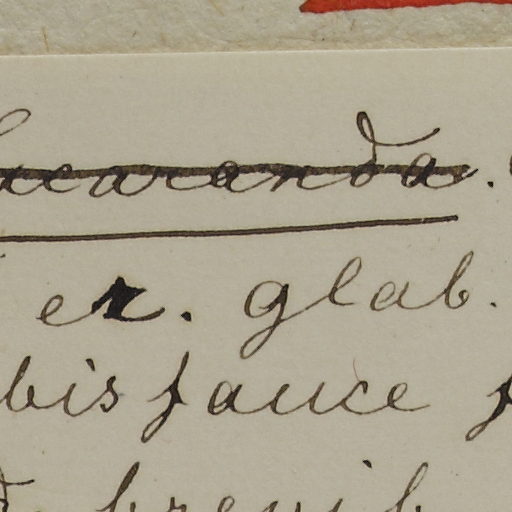 acaranda.
er. glab.
bis fauce
brevib